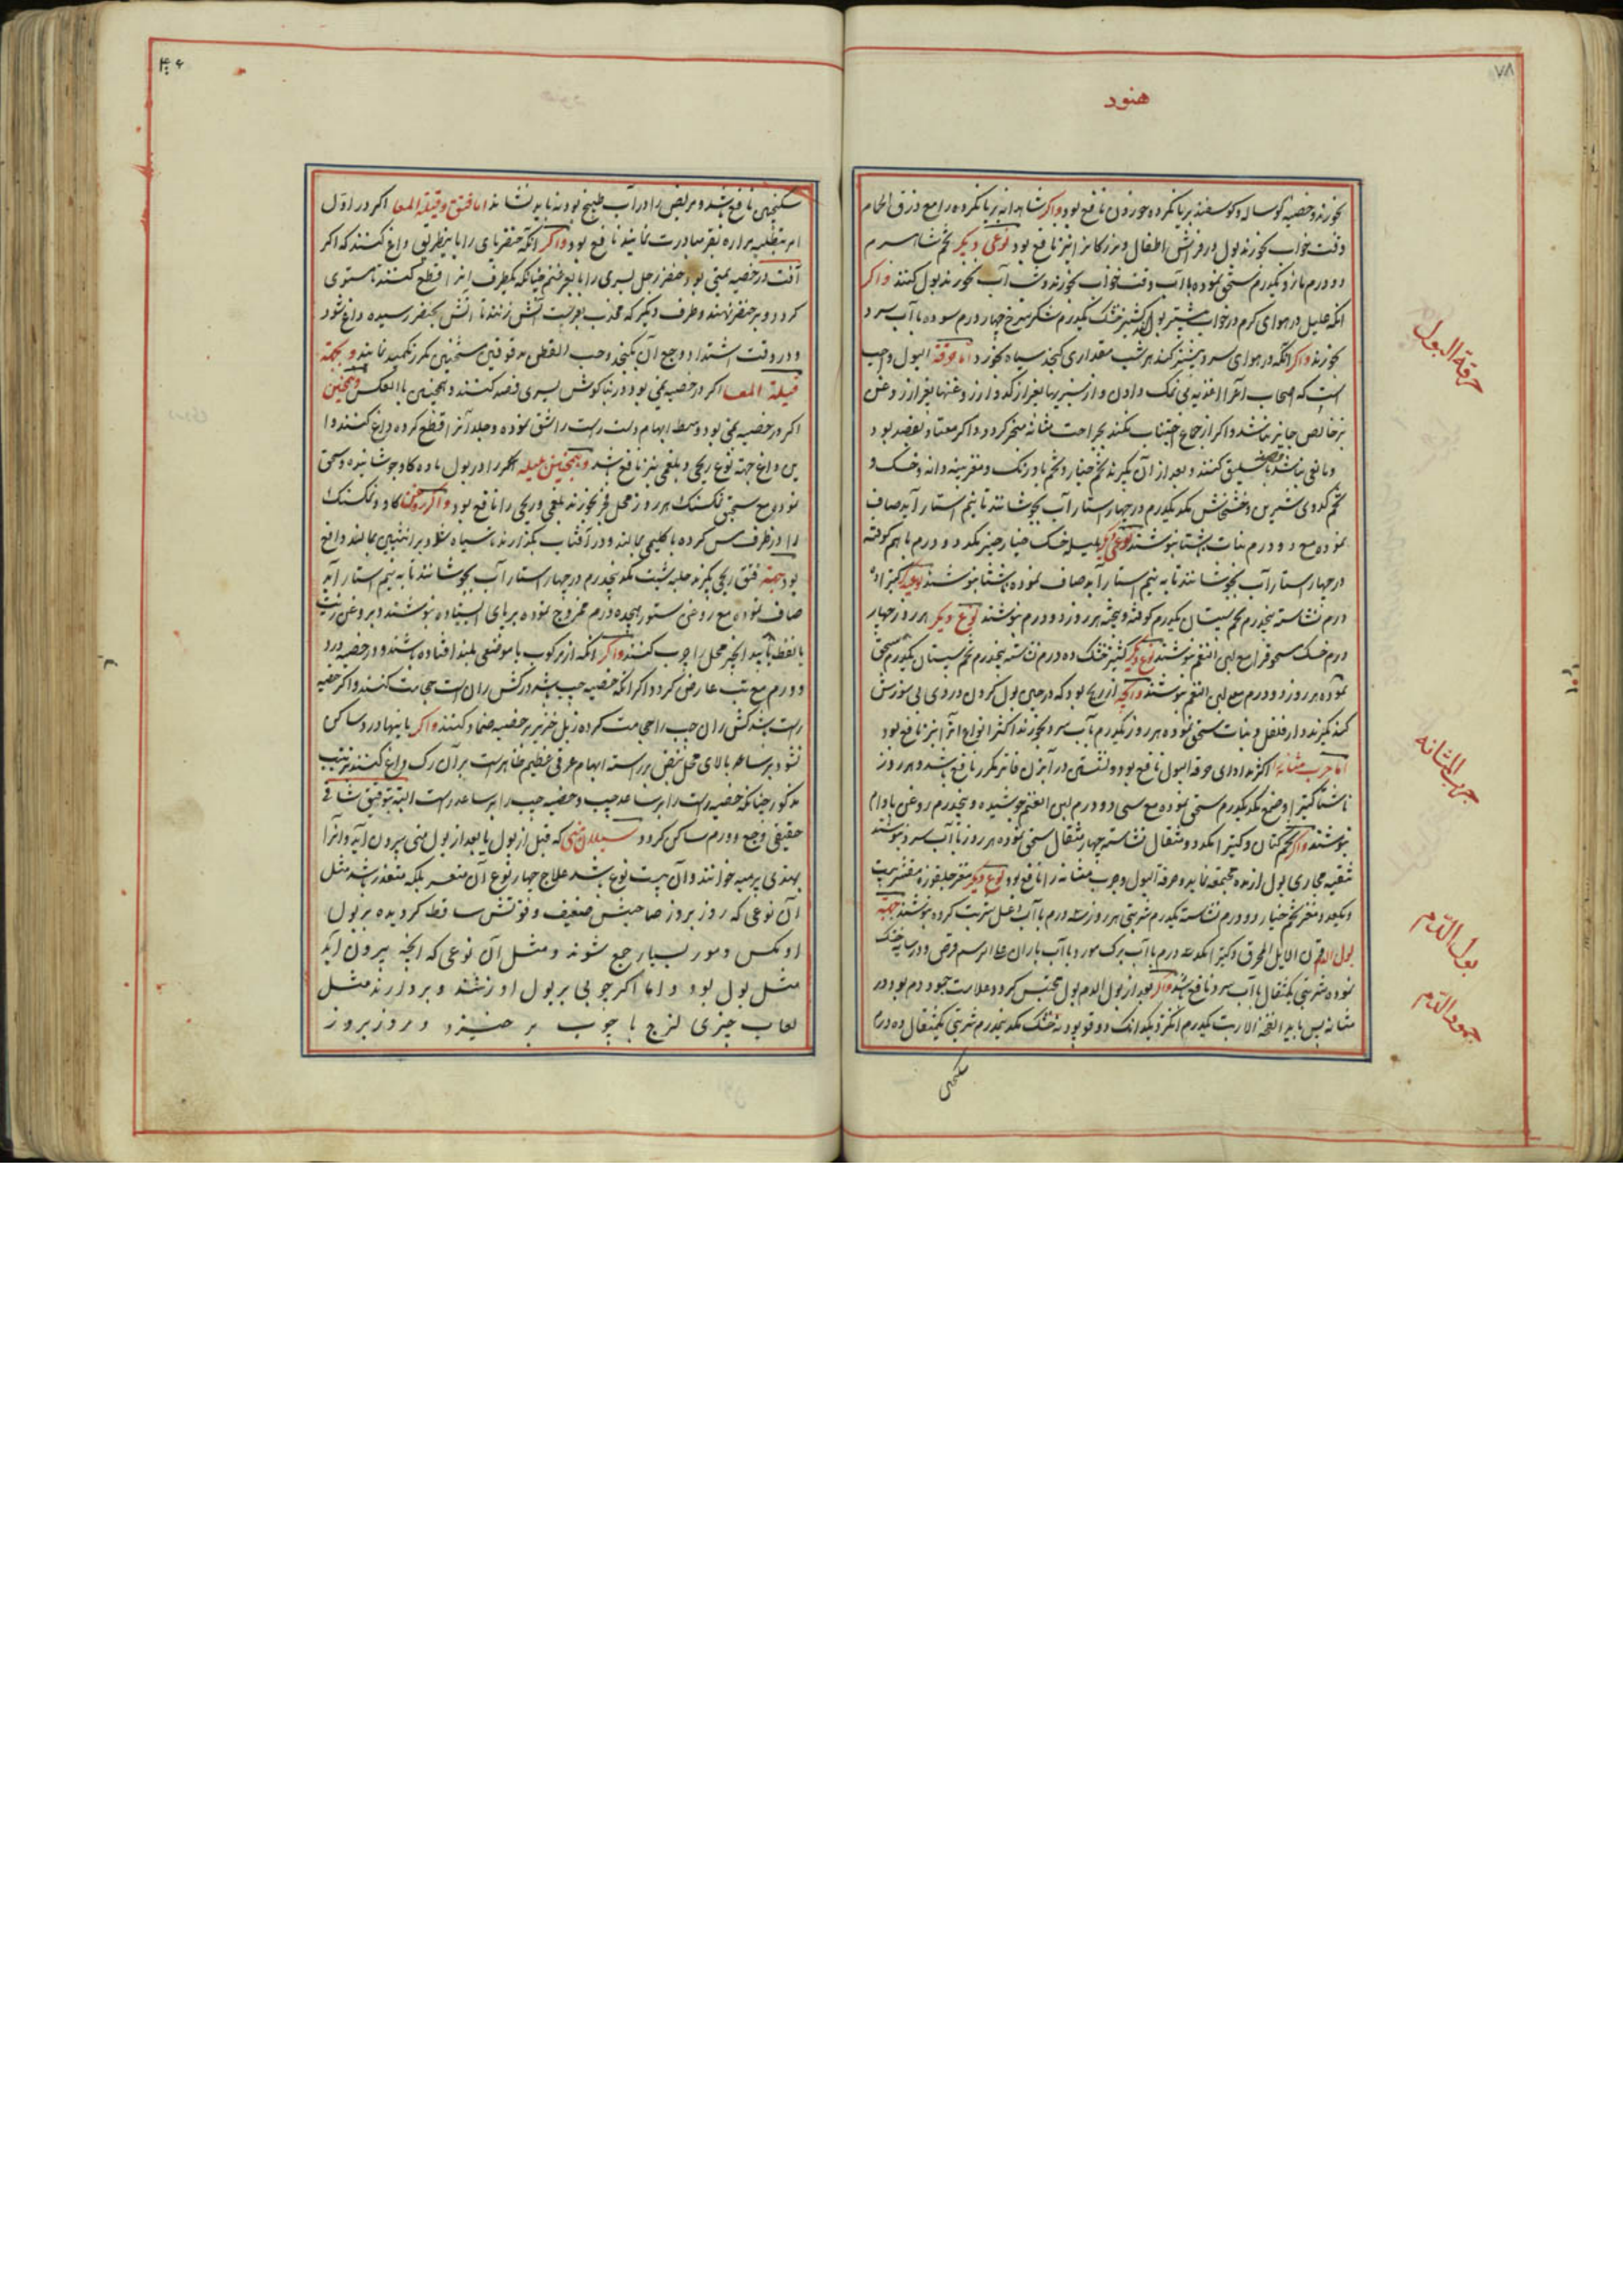 ۷۸
هنود
بخورند و خصیه کوساله و کوسفند بریانکرده خوردن نافع بود واکر شاهدانه بریانکرده را مع ذرق الحمام
وقت خواب بخورند بول در فراش اطفال و بزرکانرا نیز نافع بود نوعی دیکر تخم شاهسپرم
دو درم مازو یکدرم سحق نموده با آب وقت خواب بخورند و شب آب نخورند بول کنند واکر
انکه علیل در هوای کرم در خواب بیشتر بول کند کشنیز خشک یکدرم شکر سرخ چهار درم سوده با آب سرد
بخورند واکر انکه در هوای سرد بیشتر کند هر شب مقداری کنجد سیاه بخورد اما حرقة البول واجب
است که اصحاب آنرا اغذیه بی نمک دادن و از سبزیها بغیر از کدو و از روغنها بغیر از روغن
جایز نباشد و اکر از جماع اجتناب نکند بجراحت مثانه منجر کردد و اکر معتاد بفصد بود
و مانعی نباشد فصد باسلیق کنند و بعد از آن بکیرند تخم خیار و تخم بادرنک و مغز پنبه دانه و خسک و
تخم کدوی شیرین و خشخاش یکدرم در چهار استار آب بجوشانند تا بنیم استار آید صاف
نموده مع دو درم نبات ناشتا بنوشند نوعی دیکر هلیله خسک خیارچنبر دو درم باهم کوفته
در چهار استار آب بجوشانند تا به نیم استار آید صاف نموده ناشتا بنوشند دیکر کتیرا ده
درم نشاسته پنجدرم تخم سپستان یکدرم کوفته و بیخته هر روز دو درم بنوشند نوع دیکر هر روز چهار
درم خسک مسحوق را مع لبن الغنم بنوشند نوع دیکر کشنیز خشک ده درم نشاسته پنجدرم تخم سپستان یکدرم سحق
نموده هر روز دو درم مع لبن الغنم بنوشند و آنچه از ریح بود که در حین بول کردن دردی بی سوزش
کند بکیرند دارفلفل و نبات سحق نموده هر روز یکدرم بآب سرد بخورند اکثر انواع آنرا نیز نافع بود
اما جرب مثانه اکثر مداوای حرقة البول نافع بود و نشستن در آبزن فاتر مکرر نافع باشد و هر روز
ناشتا کتیرا و صمغ یکدرم سحق نموده مع سی دو درم لبن الغنم جوشیده و پنجدرم روغن بادام
بنوشند واکر تخم کتان و کتیرا دو مثقال نشاسته چهار مثقال سحق نموده هر روز با آب سرد بنوشند
تنقیه مجاری بول از مده مجتمعه نماید و حرقة البول و جرب مثانه را نافع بود نوع دیکر مغز جلغوزه مقشر بیست
و یکعدد مغز تخم خیار دو درم نشاسته یکدرم شربتی هر روز سه درم با آب عسل شربت کرده بنوشند جهة
بول الدم قرن الایل المحرق و کتیرا سه درم با آب برک مورد یا آب باران برسم قرص و در سایه خشک
نموده شربتی یکمثقال با آب سرد نافع باشد واکر بعد از بول الدم بول محتبس کردد و علامت جمود دم بود در
مثانه پس باید انفخة الارنب یکدرم انکزد یکدانک فودنه خشک پنجدرم شربتی یکمثقال ده درم
سکنجبین
حرقة البول
جرب المثانه
بول الدّم
جمود الدّم
سکنجبین نافع باشد و مریض را در آب طبیخ بودنه باید نشاند اما فتق و قیلة المعا اکر در اول
امر بتقلیه مراره نفر مبادرت نمایند نافع بود واکر انکه خنصر پای را باینطریق داغ کنند که اکر
آفت در خصیه یمنی بود خنصر رجل یسری را بابعر غنم چنانکه یکطرف انرا قطع کنند تا مستوی
کردد و بر خنصر نهند و طرف دیکر که محدب آتش زنند تا آتش بخنصر رسیده داغ شود
و در وقت اشتداد وجع آن کنجد و حب القطن مدقوقین مسخنین مکرر تکمید نمایند و بجهة
قیلة المعا اکر در خصیه یمنی بود در بناکوش یسری فصد کنند و همچنین بالعکس و همچنین
اکر در خصیه یمنی بود وسط ابهام دست راست را شق نموده و جلد آنرا قطع کرده داغ کنند و ا
ین داغ جهة نوع ریحی و بلغمی نیز نافع باشد و همچنین هلیله اکر را در بول ماده کاو جوشانیده و سحق
نموده مع سحیق نمکسنک هر روز محل فجر بخورند بلغمی و ریحی را نافع بود واکر روغن کاو و نمکسنک
را در ظرف مس کرده با کلیمی بمالند و در آفتاب بکذارند تا سیاه شود و بر انثیین بمالند دافع
بود جهة فتق ریحی بکیرند حلبه شبت پنجدرم در چهار استار آب بجوشانند تا به نیم استار آید
صاف نموده مع روغن ستور هجده درم ممزوج نموده بر پای ایستاده بنوشند و بروغن زیت
یا نفط یا بیدانجیر محل را چرب کنند واکر انکه از مرکوب یا موضعی بلند افتاده باشند و در خصیه درد
و ورم مع تب عارض کردد و اکر انکه خصیه چپ باشد در کش ران راست حجامت کنند و اکر خصیه
راست باشد کش ران چپ را حجامت کرده زبل خنزیر بر خصیه ضماد کنند واکر باینها درد ساکن
نشود بر ساعد بالای محل نبض بر راسته ابهام عرقی عظیم ظاهر است بر آن رک داغ کنند بترتیب
مذکور چنانکه خصیه راست را بر ساعد چپ و خصیه چپ را بر ساعد راست البته بتوفیق شافی
حقیقی وجع و ورم ساکن کردد سیلان منی که قبل از بول یا بعد از بول منی بیرون آید و آنرا
بهندی پرمیه خوانند و آن بیست نوع باشد علاج چهار نوع آن متعسر بلکه متعذر باشد مثل
آن نوعی که روز بروز صاحبش ضعیف و قوتش ساقط کردیده بر بول
او مکس و مور بسیار جمع شوند و مثل آن نوعی که انچه بیرون آید
مثل بول بود و اما اکر چوبی بر بول او زنند و بردارند مثل
لعاب چیزی لزج با چوب بر خیزد و روز بروز